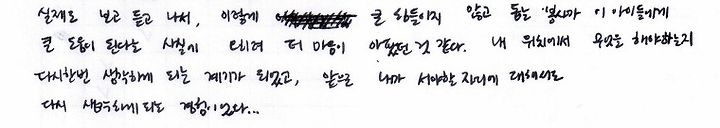 실제로 보고 듣고 나서, 이렇게 큰 힘들이지 않고 돕는 봉사가 이 아이들에게
큰 도움이 된다는 사실이 오히려 더 마음이 아팠던 것 같다. 내 위치에서 무엇을 해야하는지
다시한번 생각하게 되는 계기가 되었고, 앞으로 내가 서야할 자리에 대해서도
다시 생각하게 되는 경험이었다...